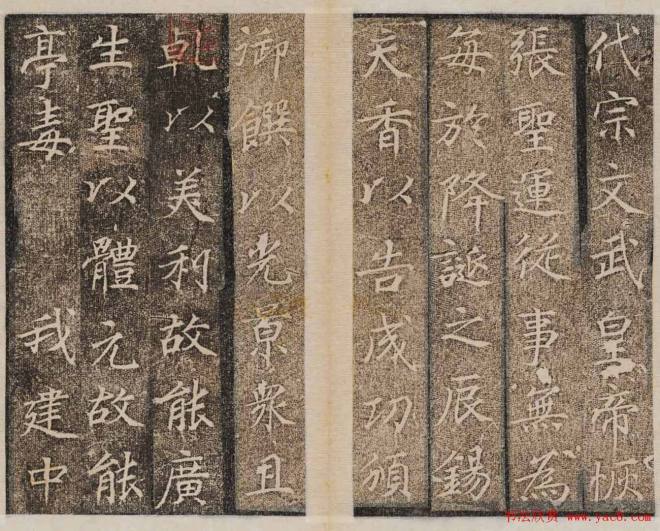 代宗文武皇帝恢
張聖運從事無為
每於降誕之辰錫
天香以告成功頒
御饌以光景衆且
乾以美利故能廣
生聖以體元故能
亭毒 我建中
书法欣赏 www.yac8.com